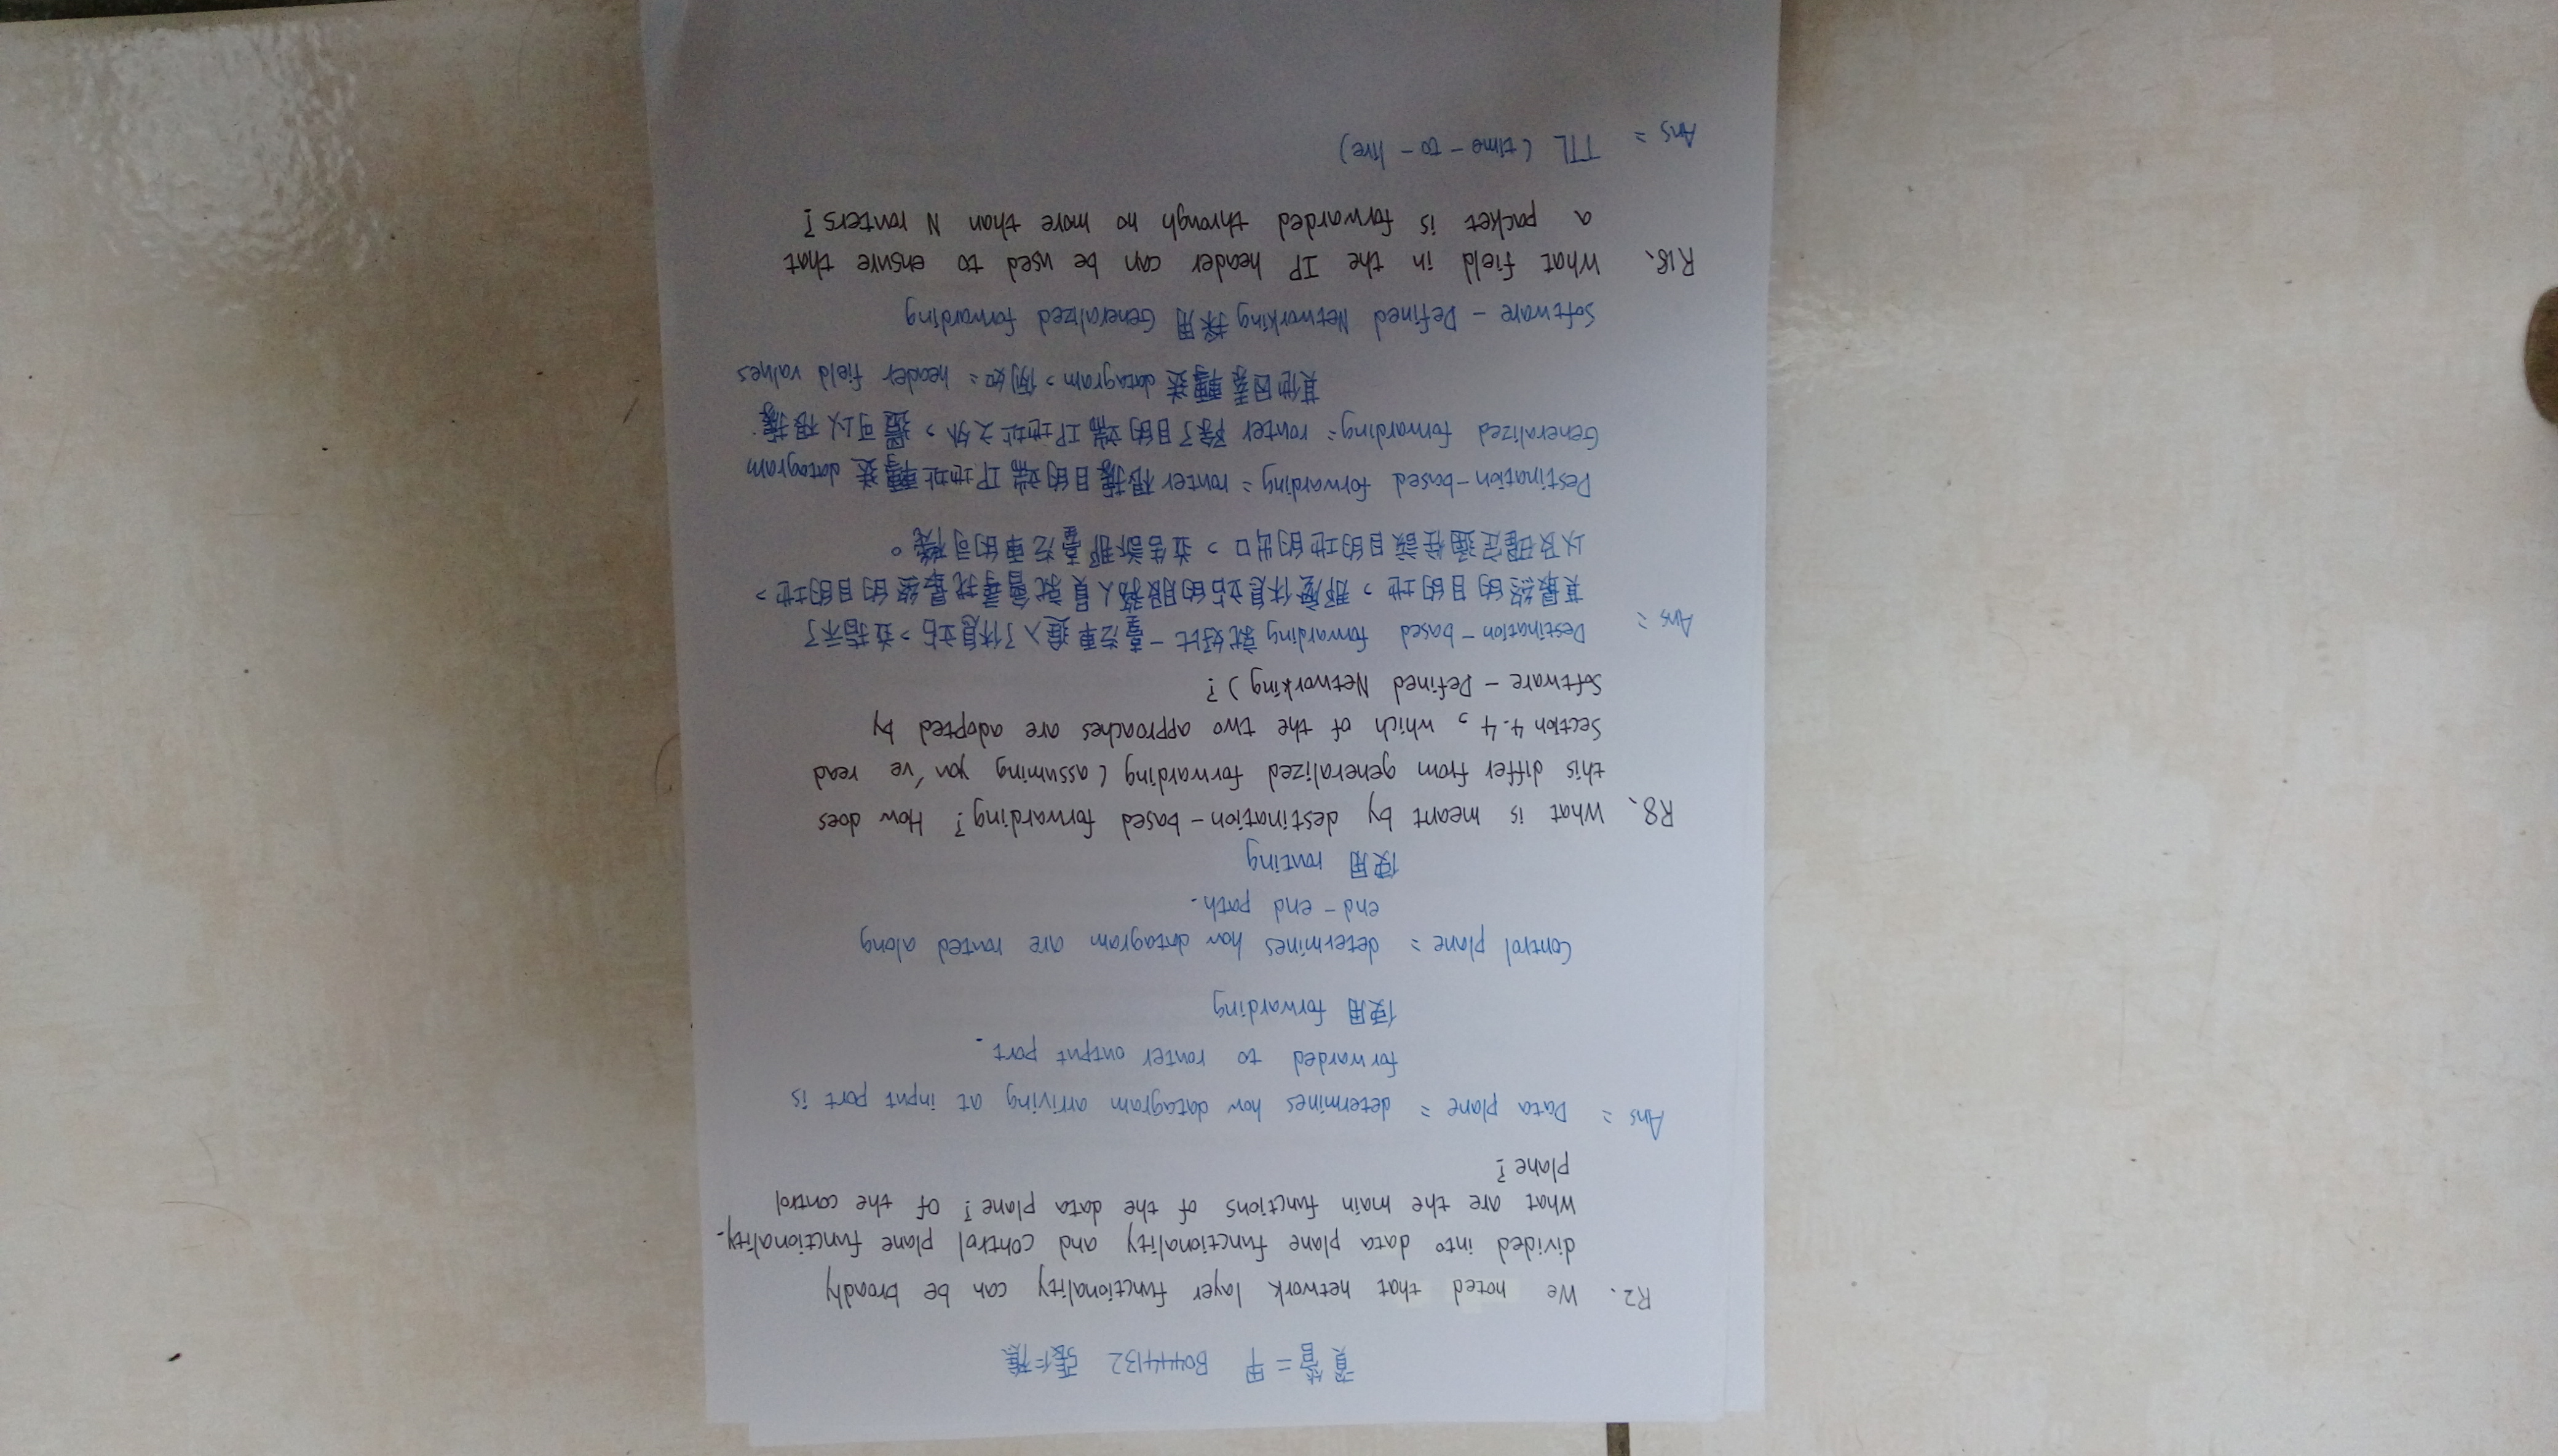 資管二甲 B0444132 張仁樵
R2、 We noted that network layer functionality can be broadly
divided into data plane functionality and control plane functionality.
What are the main functions of the data plane? Of the control
plane?
Ans: Data plane: determines how datagram arriving at input port is
forwarded to router output port.
使用 forwarding
Control plane: determines how datagram are routed along
end-end path.
使用 routing
R8、 What is meant by destination-based forwarding? How does
this differ from generalized forwarding (assuming you've read
Section 4.4, which of the two approaches are adopted by
Software-Defined Networking)?
Ans: Destination-based forwarding 就好比一臺汽車進入了休息站,並指示了
其最終的目的地,那麼休息站的服務人員就會尋找最終的目的地,
以及確定通往該目的地的出口,並告訴那臺汽車的司機。
Destination-based forwarding: router 根據目的端 IP 地址轉送 datagram
Generalized forwarding: router 除了目的端 IP 地址之外,還可以根據
其他因素轉送 datagram,例如: header field values
Software-Defined Networking 採用 Generalized forwarding
R18、 What field in the IP header can be used to ensure that
a packet is forwarded through no more than N routers?
Ans: TTL (time-to-live)